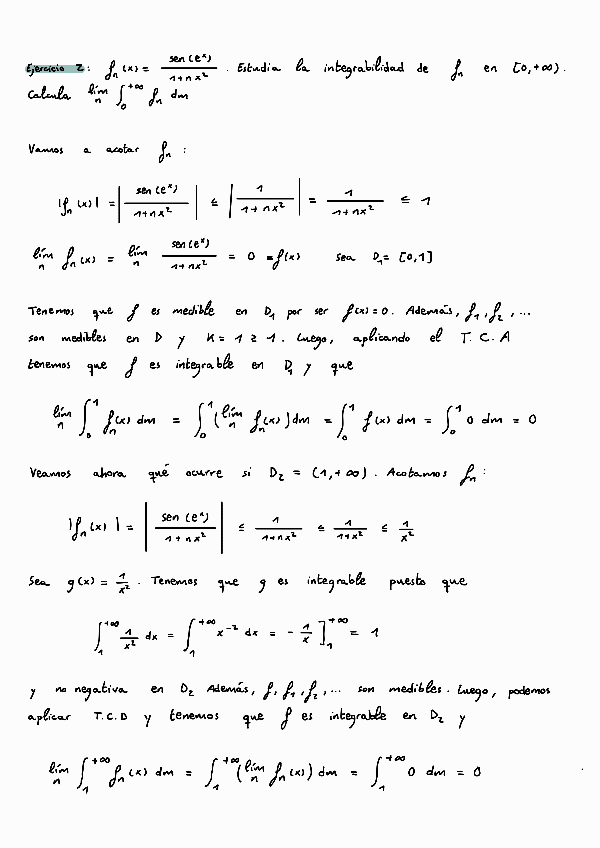 Ejercicio 2: fₙ(x) = sen(eˣ) / (1+nx²) . Estudia la integrabilidad de fₙ en [0,+∞).
Calcula lím_n ∫₀^{+∞} fₙ dm
Vamos a acotar fₙ :
|fₙ(x)| = |sen(eˣ) / (1+nx²)| ≤ |1 / (1+nx²)| = 1 / (1+nx²) ≤ 1
lím_n fₙ(x) = lím_n sen(eˣ) / (1+nx²) = 0 = f(x) Sea D₁ = [0,1]
Tenemos que f es medible en D₁ por ser f(x)=0. Además, f₁, f₂, ...
son medibles en D y K = 1 ≥ 1. Luego, aplicando el T.C.A
tenemos que f es integrable en D₁ y que
lím_n ∫₀¹ fₙ(x) dm = ∫₀¹ (lím_n fₙ(x)) dm = ∫₀¹ f(x) dm = ∫₀¹ 0 dm = 0
Veamos ahora qué ocurre si D₂ = (1,+∞). Acotamos fₙ :
|fₙ(x)| = |sen(eˣ) / (1+nx²)| ≤ 1 / (1+nx²) ≤ 1 / (1+x²) ≤ 1/x²
Sea g(x) = 1/x² . Tenemos que g es integrable puesto que
∫₁^{+∞} 1/x² dx = ∫₁^{+∞} x⁻² dx = - 1/x ]₁^{+∞} = 1
y no negativa en D₂ Además, f, f₁, f₂, ... son medibles. Luego, podemos
aplicar T.C.D y tenemos que f es integrable en D₂ y
lím_n ∫₁^{+∞} fₙ(x) dm = ∫₁^{+∞} (lím_n fₙ(x)) dm = ∫₁^{+∞} 0 dm = 0